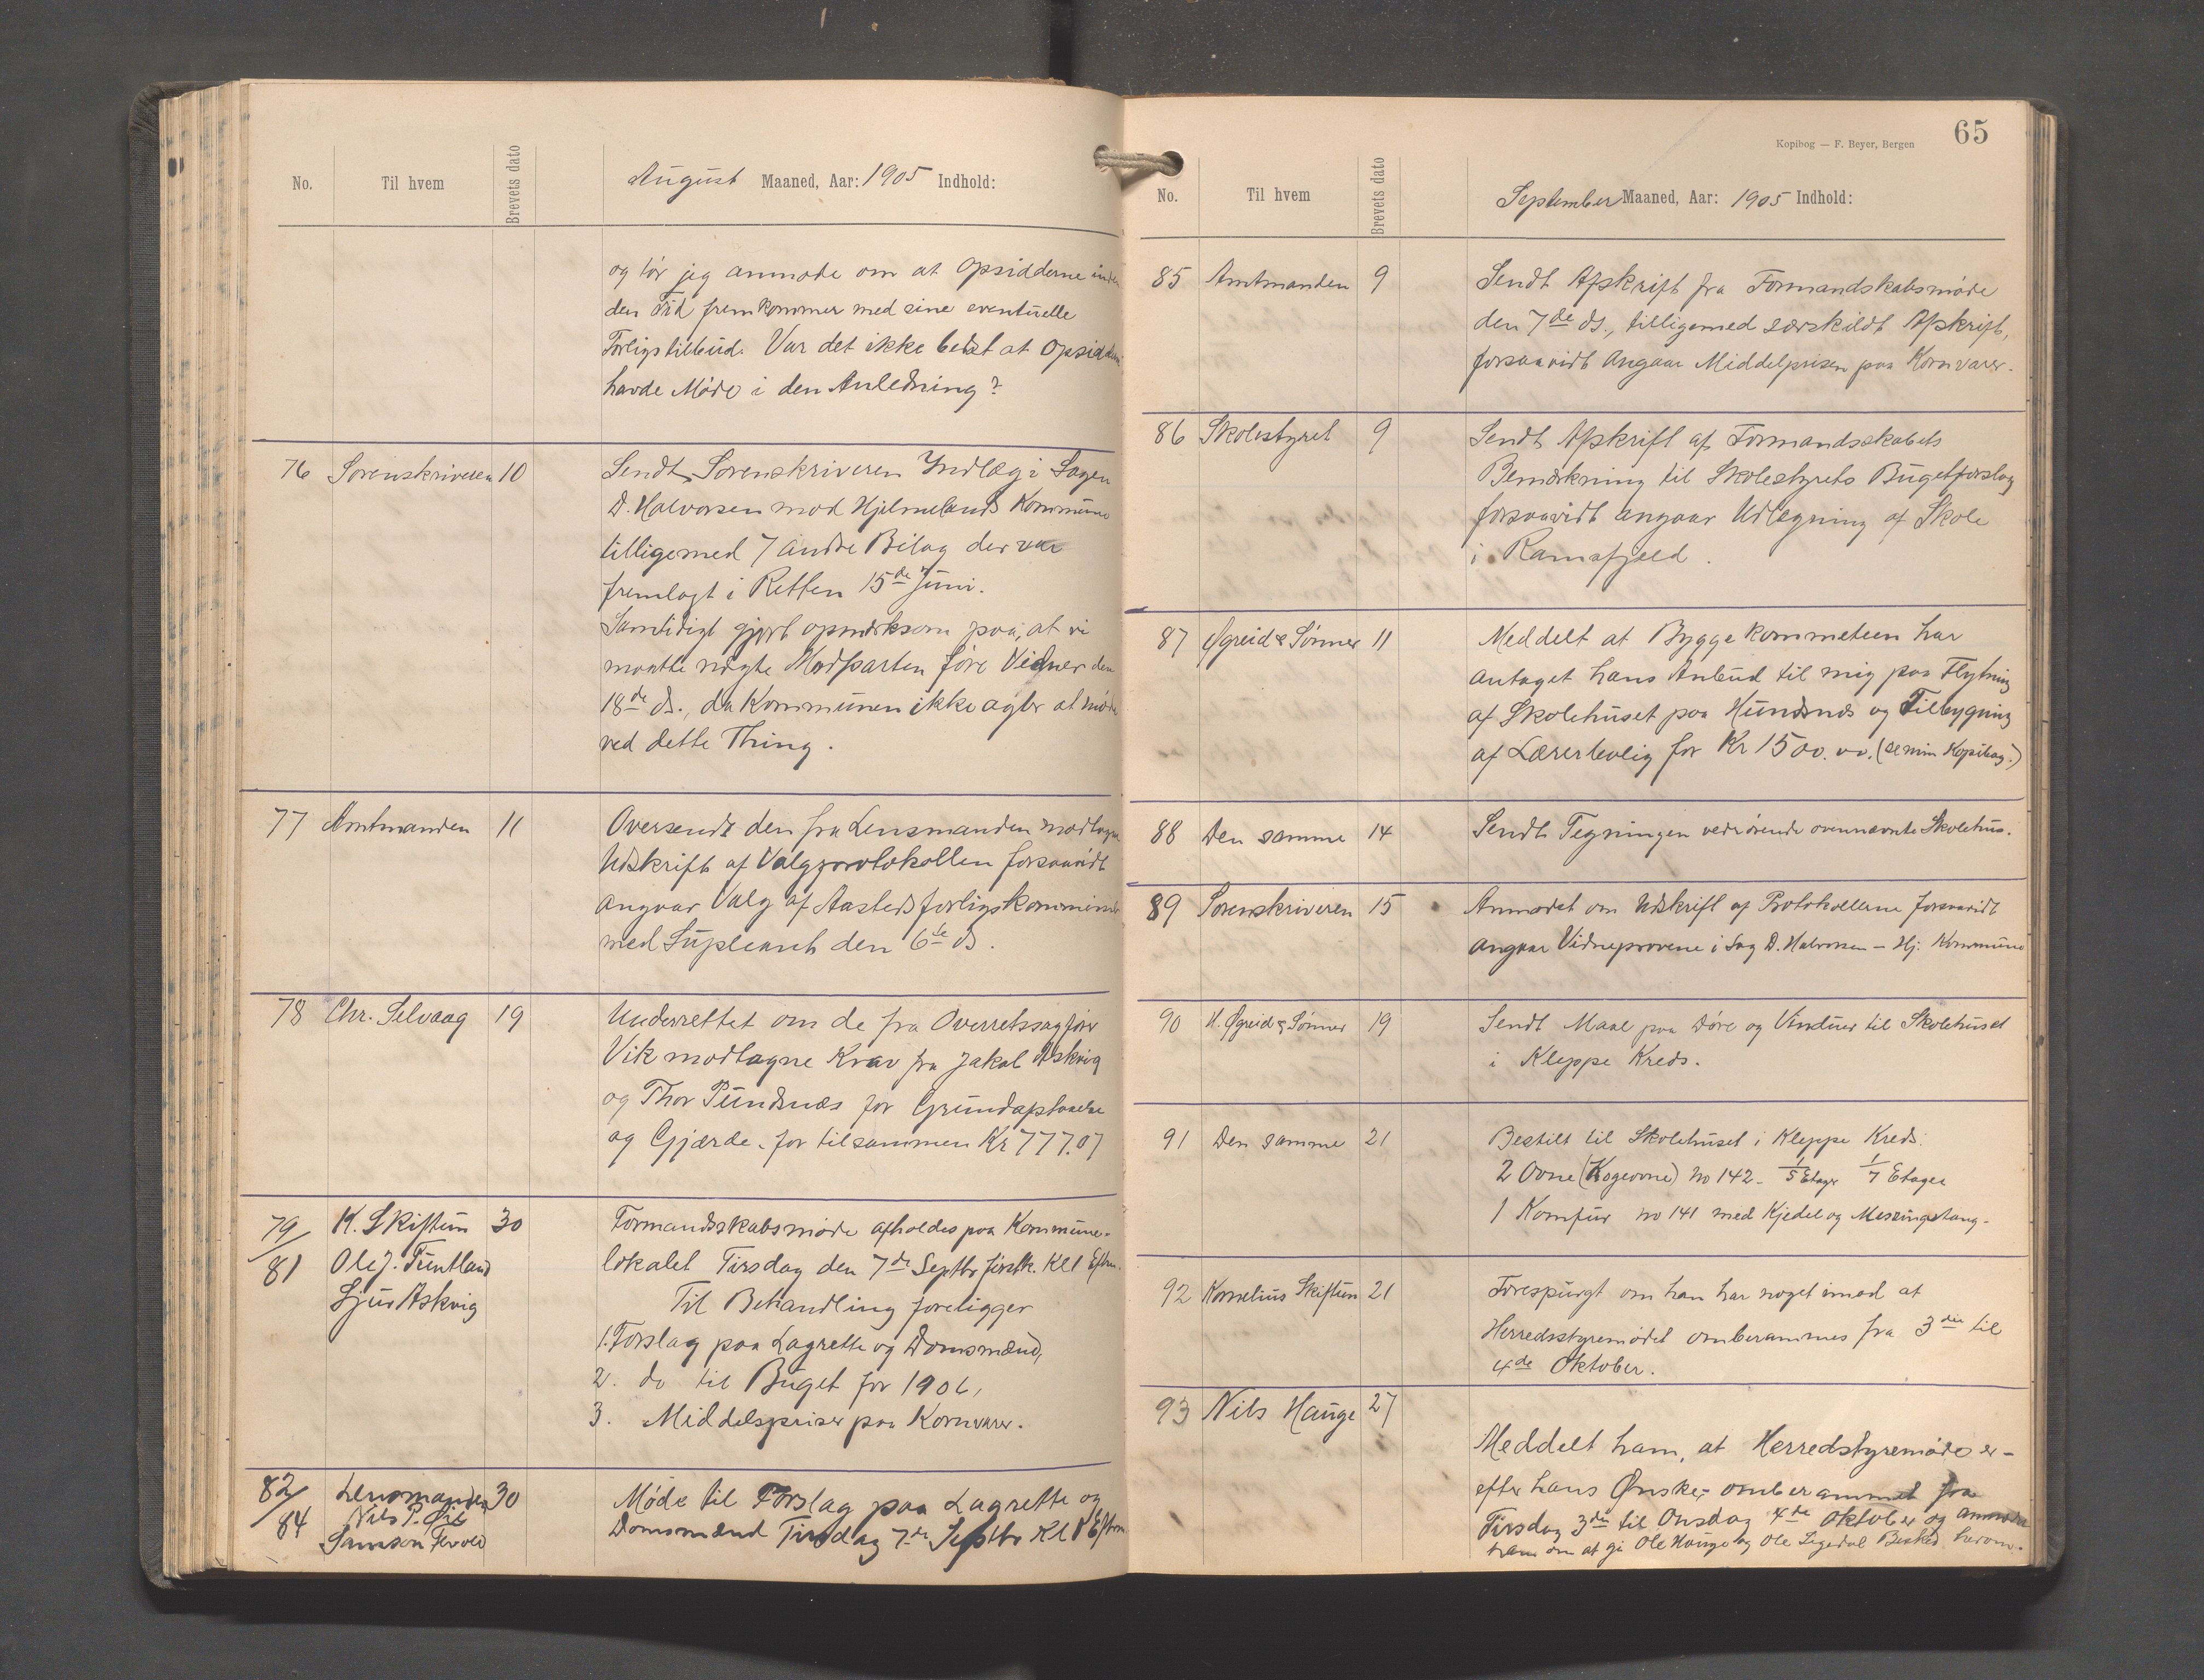 No. Til hvem Brevets dato August Maaned, Aar: 1905 Indhold:
og tør jeg anmode om at Opsidderne inden
den Tid fremkommer med sine eventuelle
Forligstilbud. Var det ikke bedst at Opsidderne
havde Møde i den Anledning?
76 Sorenskriveren 10 Sendt Sorenskriveren Indlæg i Sagen
D. Halvorsen mod Hjelmelands Kommune
tilligemed 7 andre Bilag der var
fremlagt i Retten 15de Juni.
Samtidigt gjort opmerksom paa, at vi
maatte nægte Modparten føre Vidner den
18de ds., da Kommunen ikke agter at møde
ved dette Thing.
77 Amtmanden 11 Oversendt den fra Lensmanden modtagne
Udskrift af Valgprotokollen forsaavidt
angaar Valg af Aastedsforligskommission
med Supleant den 6te ds.
78 Chr. Selvaag 19 Underrettet om de fra Overretssagfører
Vik modtagne Krav fra Jakob Askvig
og Thor Pundsnes for Grundafstaaelse
og Gjærde. for tilsammen Kr 777.07
79/81 K. Skiftun 30 Formandsskabsmøde afholdes paa Kommune-
Ole J. Funtland lokalet Tirsdag den 7de Septbr førstk. Kl 1 Efterm.
Sjur Askvig Til Behandling foreligger
1. Forslag paa Lagrette og Domsmænd,
2. do til Buget for 1906,
3. Middelspriser paa Kornvarer.
82/84 Lensmanden 30 Møde til Forslag paa Lagrette og
Nils P. Øie Domsmænd Tirsdag 7de Septbr Kl 1 Efterm
Samson
65
Kopibog — F. Beyer, Bergen
No. Til hvem Brevets dato September Maaned, Aar: 1905 Indhold:
85 Amtmanden 9 Sendt Afskrift fra Formandskabsmøde
den 7de ds., tilligemed særskildt Afskrift,
forsaavidt angaar Middelprisen paa Kornvarer.
86 Skolestyret 9 Sendt Afskrift af Formandsskabets
Bemærkning til Skolestyrets Bugetforslag
forsaavidt angaar Udlægning af Skole
i Ramsfjeld.
87 Øgreid & Sønner 11 Meddelt at Byggekommeteen har
antaget hans Anbud til mig paa Flytning
af Skolehuset paa Hundsnes og Tilbygning
af Lærerbolig for Kr 1500.00. (se min Kopibog.)
88 Den samme 14 Sendt Tegningen vedrørende ovennævnte Skolehus.
89 Sorenskriveren 15 Anmodet om Udskrift af Protokollerne forsaavidt
angaar Vidneprovene i Sag D. Halvorsen – Hj. Kommune
90 H. Øgreid & Sønner 19 Sendt Maal paa Døre og Vinduer til Skolehuset
i Kleppe Kreds.
91 Den samme 21 Bestilt til Skolehuset i Kleppe Kreds:
2 Ovne (Kogeovne) No 142 - 1/5 Etager 1/7 Etager
1 Komfur no 141 med Kjedel og Messingstang.
92 Kornelius Skiftun 21 Forespurgt om han har noget imod at
Herredsstyremødet omberammes fra 3die til
4de Oktober.
93 Nils Hauge 27
Meddelt ham, at Herredstyremøde er -
efter hans Ønske, - omberammet fra
Tirsdag 3die til Onsdag 4de Oktober og anmodet
ham om at gi Ole Hauge og Ole Besked herom.